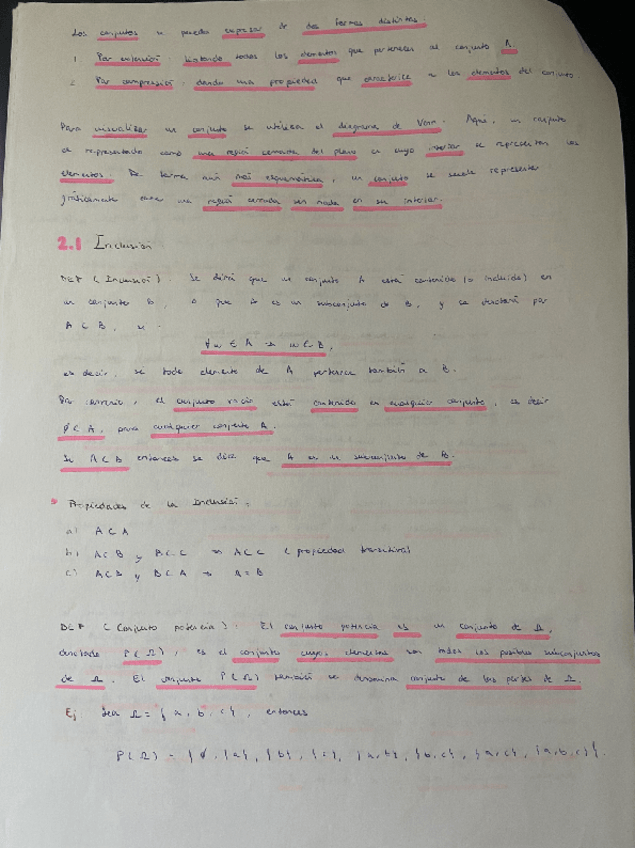 Los conjuntos se pueden expresar de dos formas distintas:
1. Por extensión: listando todos los elementos que pertenecen al conjunto A.
2. Por comprensión: dando una propiedad que caracterice a los elementos del conjunto
Para visualizar un conjunto se utiliza el diagrama de Venn. Aquí, un conjunto
es representado como una región cerrada del plano en cuyo interior se representan los
elementos. De forma aún más esquemática, un conjunto se suele representar
gráficamente como una región cerrada sin nada en su interior.
2.1 Inclusión
DEF (Inclusión). Se dirá que un conjunto A está contenido (o incluido) en
un conjunto B, o que A es un subconjunto de B, y se denotará por
A ⊂ B, si
∀ω ∈ A ⇒ ω ∈ B,
es decir, si todo elemento de A pertenece también a B.
Por convenio, el conjunto vacío está contenido en cualquier conjunto, es decir
∅ ⊂ A, para cualquier conjunto A.
Si A ⊂ B entonces se dice que A es un subconjunto de B.
Propiedades de la Inclusión:
a) A ⊂ A
b) A ⊂ B y B ⊂ C ⇒ A ⊂ C (propiedad transitiva)
c) A ⊂ B y B ⊂ A ⇒ A = B
DEF (Conjunto potencia): El conjunto potencia es un conjunto de Ω,
denotado P(Ω), es el conjunto cuyos elementos son todos los posibles subconjuntos
de Ω. El conjunto P(Ω) también se denomina conjunto de las partes de Ω.
Ej Sea Ω = {a, b, c}, entonces
P(Ω) = {∅, {a}, {b}, {c}, {a, b}, {b, c}, {a, c}, {a, b, c}}.